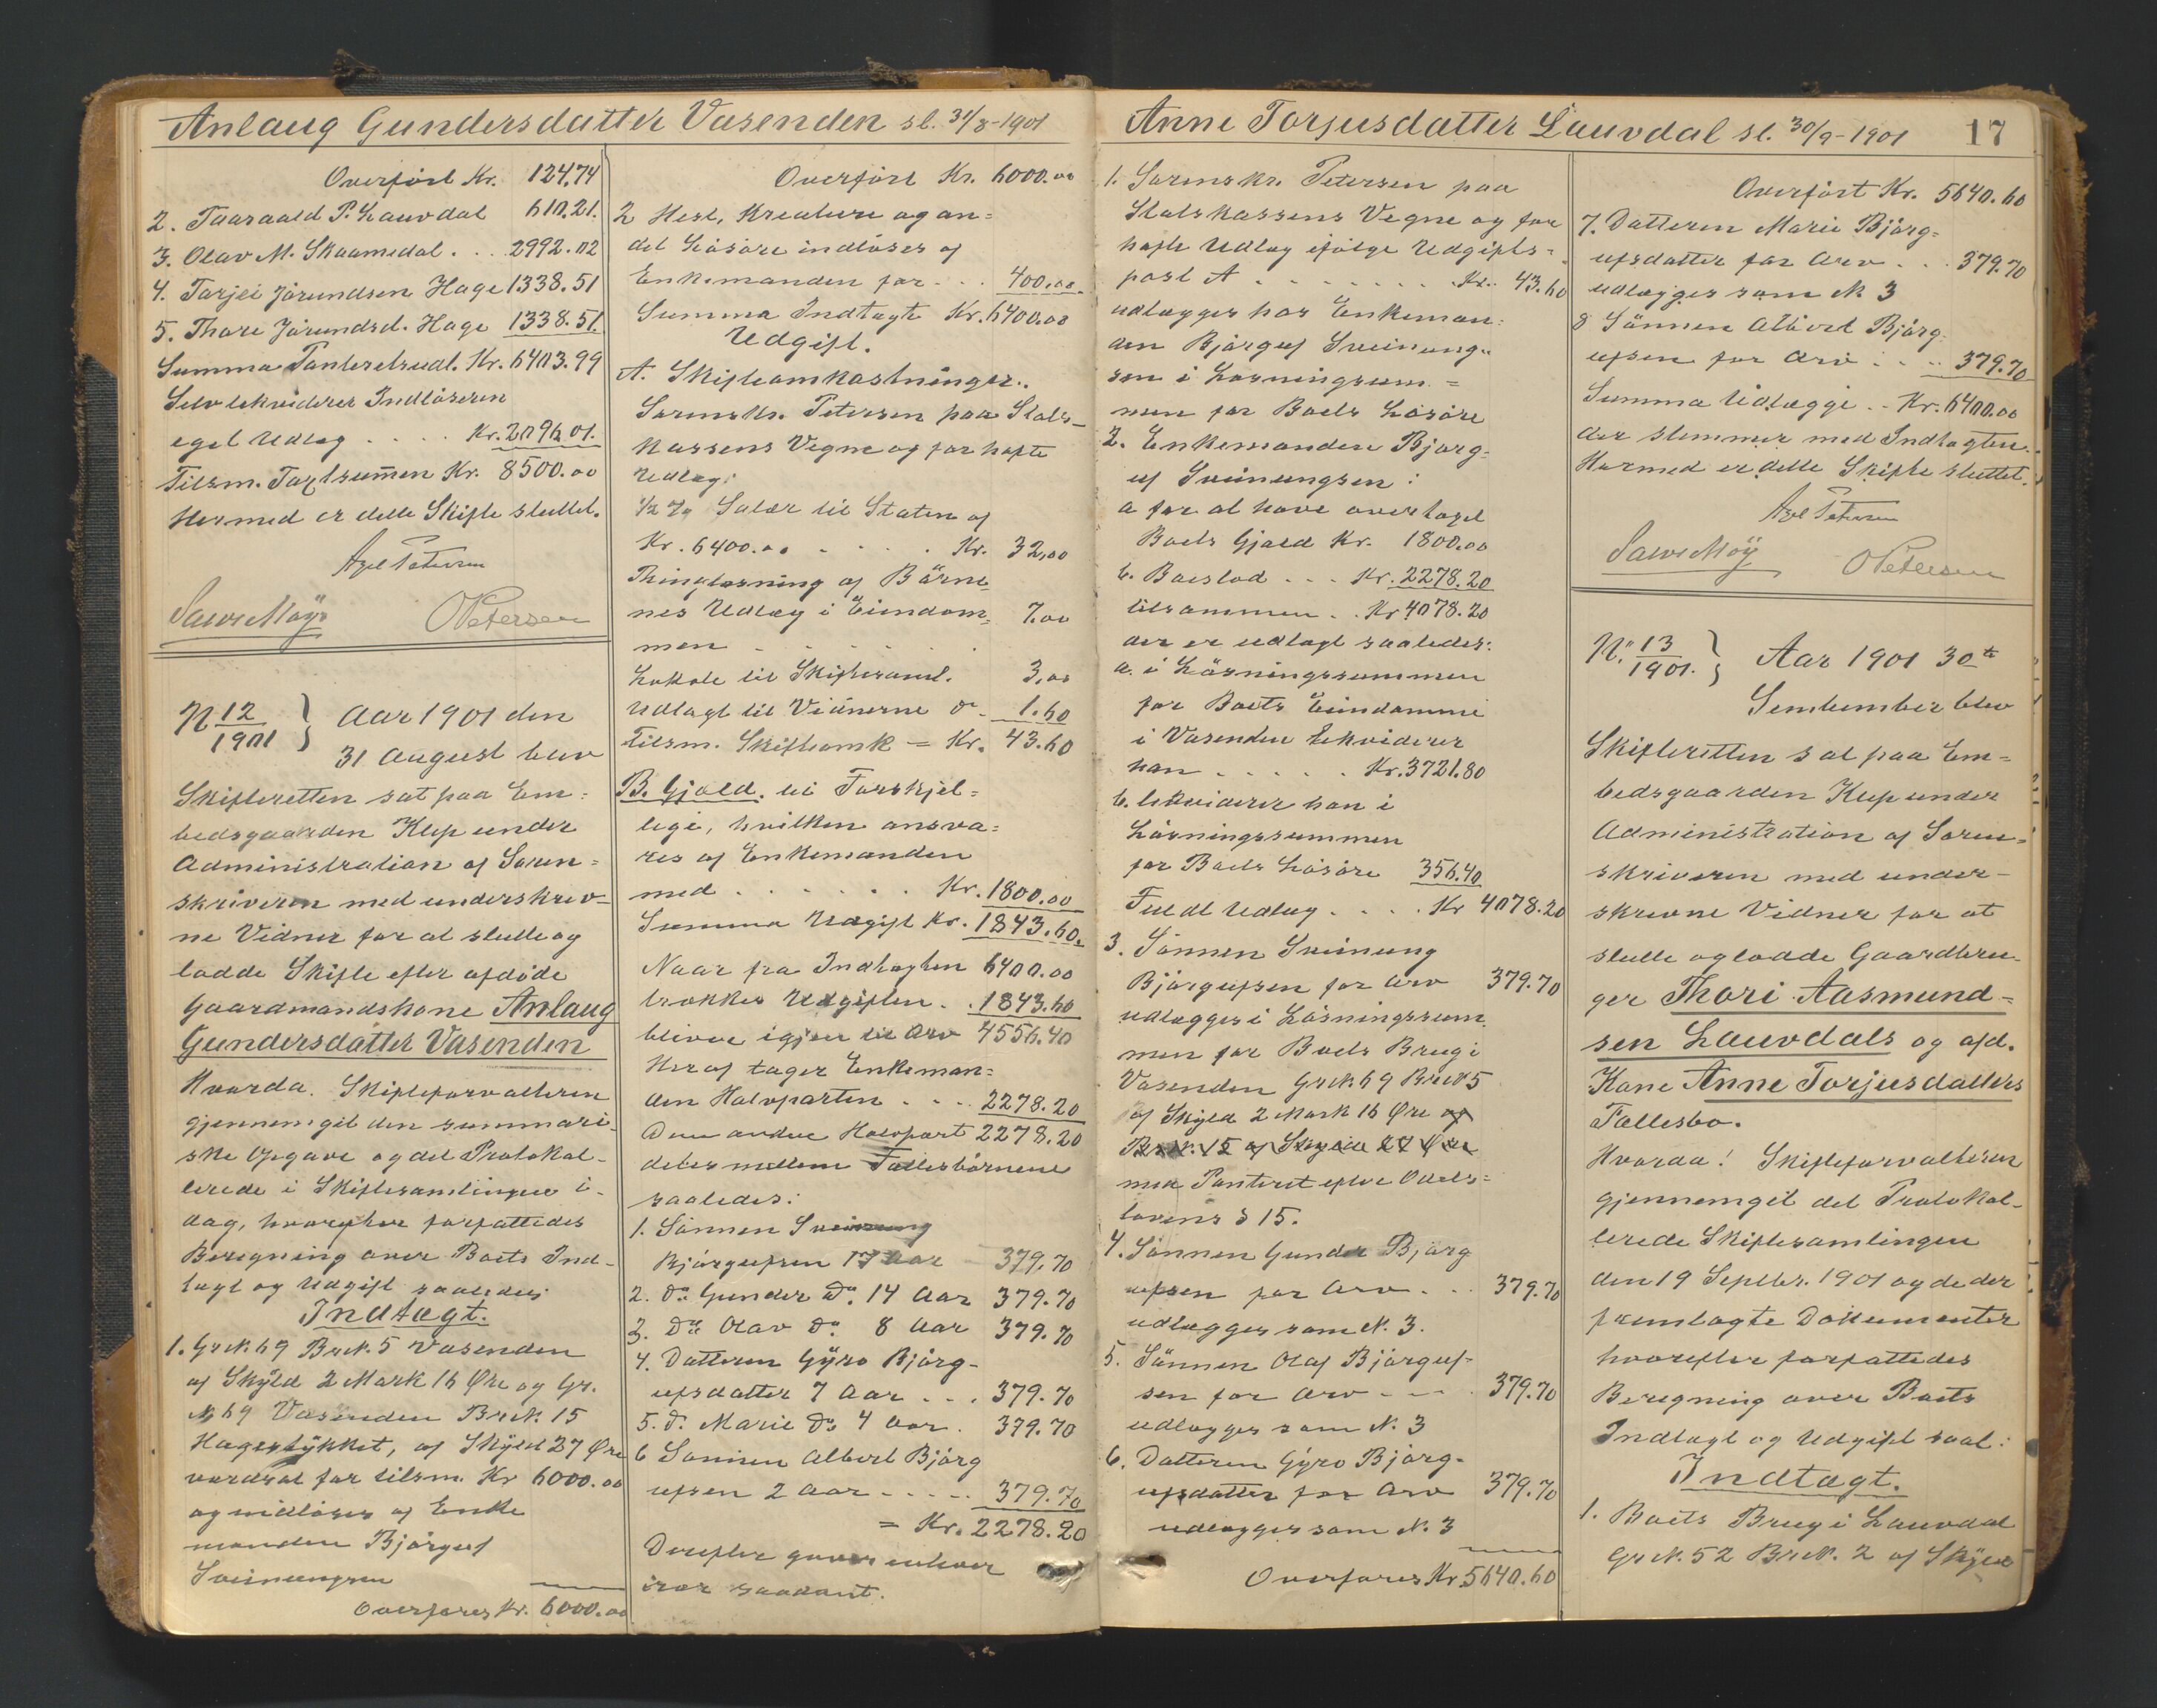 Anlaug Gundersdatter Vasenden sl. 31/8-1901
Overført Kr. 124,74
2. Taaraald P. Lauvdal 610.21.
3. Olav M. Skaamedal . . . 2992.02
4. Tarjei Jørundsen Hage 1338.51
5. Thore Jørundsd. Hage 1338.51.
Summa Panteretsudl. Kr. 6403.99
Selv lekviderer Indløseren
eget Udlæg . . . . Kr. 2096.01.
Tilsm. Taxtsum̄en Kr. 8500.00
Hermed er dette Skifte sluttet.
Axel Petersen
O Petersen
N. 12/1901 } Aar 1901 den
31 August blev
Skifteretten sat paa Em=
bedsgaarden Klep under
Administration af Soren=
skriveren med underskrev=
ne Vidner for at slutte og
lodde Skifte efter afdøde
Gaardmandskone Anlaug
Gundersdatter Vasenden
Hvorda. Skifteforvalteren
gjennemgik den summari-
ske Opgave og det Protokol-
lerede i Skiftesamlingen i-
dag, hvorefter forfattedes
Beregning over Boets Ind-
tægt og Udgift saaledes
Indtægt.
1. Gr.N. 69 Br.N. 5 Vasenden
af Skyld 2 Mark 16 Øre og Gr.
N 69 Vasenden Br.N. 15
Hagestykket, af Skyld 27 Øre
værdsat for tilsm. Kr 6000.00
og indløses af Enke
manden Bjørguf
Sveinungsen
Overføres Kr. 6000.00
Overført Kr. 6000.00
2 Hest, Kreature og an=
det Løsøre indløses af
Enkemanden for . . . 400.00.
Summa Indtægt Kr. 6400.00
Udgift.
A. Skifteomkostninger.
Sorenskr. Petersen paa Stats-
kassens Vegne og for hafte
Udlæg:
1/2 % Salær til Staten af
Kr. 6400.00 . . . . . Kr. 32,00
Thinglæsning af Børne
nes Udlæg i Eiendom= 7.00
men . . . . . .
Lokale til Skiftesaml. 3,00
Udlagt til Vidnerne do 1.60
Tilsm. Skifteomk = Kr. 43.60
B. Gjæld. til Forskjel=
lige, hvilken ansva=
res af Enkemanden
med . . . . . . Kr. 1800.00
Summa Udgift Kr. 1843.60.
Naar fra Indtægten 6400.00
trækkes Udgiften . . 1843.60
bliver igjen til Arv 4556.40
Heraf tager Enkeman=
den Halvparten . . . 2278.20
Den anden Halvpart 2278.20
deles mellem Fællesbørnene
saaledes:
1. Sønnen Sveinung
Bjørgufsen 17 Aar 379.70
2. do Gunder do 14 Aar 379.70
3. do Olav do 8 Aar 379.70
4. Datteren Gyro Bjørg-
ufsdatter 7 Aar . . . 379.70
5. do Marie do 4 Aar . 379.70
6 Sønnen Albert Bjørg
ufsen 2 Aar . . . . . 379.70
= Kr. 2278.20
Derefter gaves enhver
især saadant.
Anne Torjusdatter Lauvdal sl. 30/9-1901 17
1. Sorenskr. Petersen paa
Statskassens Vegne og for
hafte Udlæg ifølge Udgifts=
post A . . . . . . . . Kr. 43.60
udlægges hos Enkeman=
den Bjørguf Sveinung-
sen i Løsningssum=
men for Boets Løsøre
2. Enkemanden Bjørg=
uf Sveinungsen:
a for at have overtaget
Boets Gjæld Kr. 1800.00
b. Boeslod . . . Kr. 2278.20
tilsammen . . Kr 4078.20
der er udlagt saaledes:
a. i Løsningssummen
for Boets Eiendomme
i Vasenden lekviderer
han . . . . . Kr. 3721.80
b. lekviderer han i
Løsningssummen
for Boets Løsøre 356.40
Fuldt Udlæg . . . . Kr 4078.20
3. Sønnen Sveinung
Bjørgufsen for Arv 379.70
udlægges i Løsningssum
men for Boets Brug i
Vasenden Gr.N. 69 Br.N. 5
af Skyld 2 Mark 16 Øre og
Br.N. 15 af Skyld 27 Øre
med Panteret efter Odels=
lovens § 15.
4. Sønnen Gunder Bjørg
ufsen for Arv . . . 379.70
udlægges som N. 3.
5. Sønnen Olaf Bjørguf-
sen for Arv . . . . 379.70
udlægges som N. 3
6. Datteren Gyro Bjørg-
ufsdatter for Arv 379.70
udlægges som N. 3
Overføres Kr. 5640.60
Overført Kr. 5640.60
7. Datteren Marie Bjørg=
ufsdatter for Arv . . . 379.70
udlægges som N. 3
8 Sønnen Albert Bjørg
ufsen for Arv . . . . 379.70
Summa Udlægge . . Kr. 6400.00
der stemmer med Indtægten.
Hermed er dette Skifte sluttet.
Axel Petersen
O Petersen
N. 13/1901. } Aar 1901 30te
Sembember blev
Skifteretten sat paa Em=
bedsgaarden Klep under
Administration af Soren=
skriveren med under-
skrevne Vidner for at
slutte og lodde Gaardbru-
ger Thori Aasmund=
sen Lauvdals og afd.
Kone Anne Torjusdatters
Fællesbo.
Hvorda! Skifteforvalteren
gjennemgik det Protokol-
lerede Skiftesamlingen
den 19 Septbr. 1901 og de der
fremlagte Dokumenter
hvorefter forfattedes
Beregning over Boets
Indtægt og Udgift saal:
Indtægt.
1. Boets Brug i Lauvdal
Gr.N. 52 Br.N. 2 af Skyld